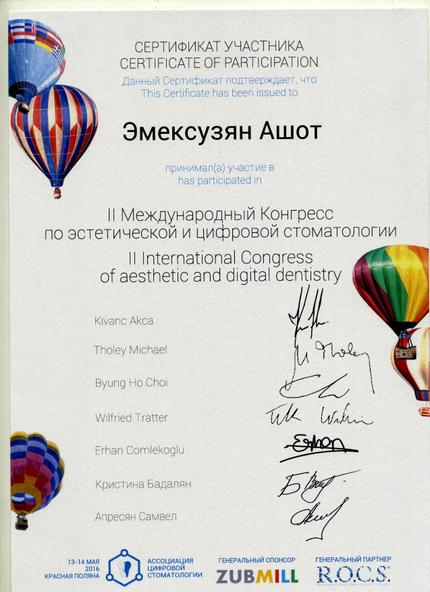 СЕРТИФИКАТ УЧАСТНИКА
CERTIFICATE OF PARTICIPATION
Данный Сертификат подтверждает, что
This Certificate has been issued to
Эмексузян Ашот
принимал(а) участие в
has participated in
II Международный Конгресс
по эстетической и цифровой стоматологии
II International Congress
of aesthetic and digital dentistry
Kivanc Akca
Tholey Michael
M Tholey
Byung Ho Choi
Wilfried Tratter
Erhan Comlekoglu
Erhan
Кристина Бадалян
Апресян Самвел
13-14 МАЯ
2016
КРАСНАЯ ПОЛЯНА
АССОЦИАЦИЯ
ЦИФРОВОЙ
СТОМАТОЛОГИИ
ГЕНЕРАЛЬНЫЙ СПОНСОР
ZUBMILL
ГЕНЕРАЛЬНЫЙ ПАРТНЕР
R.O.C.S.